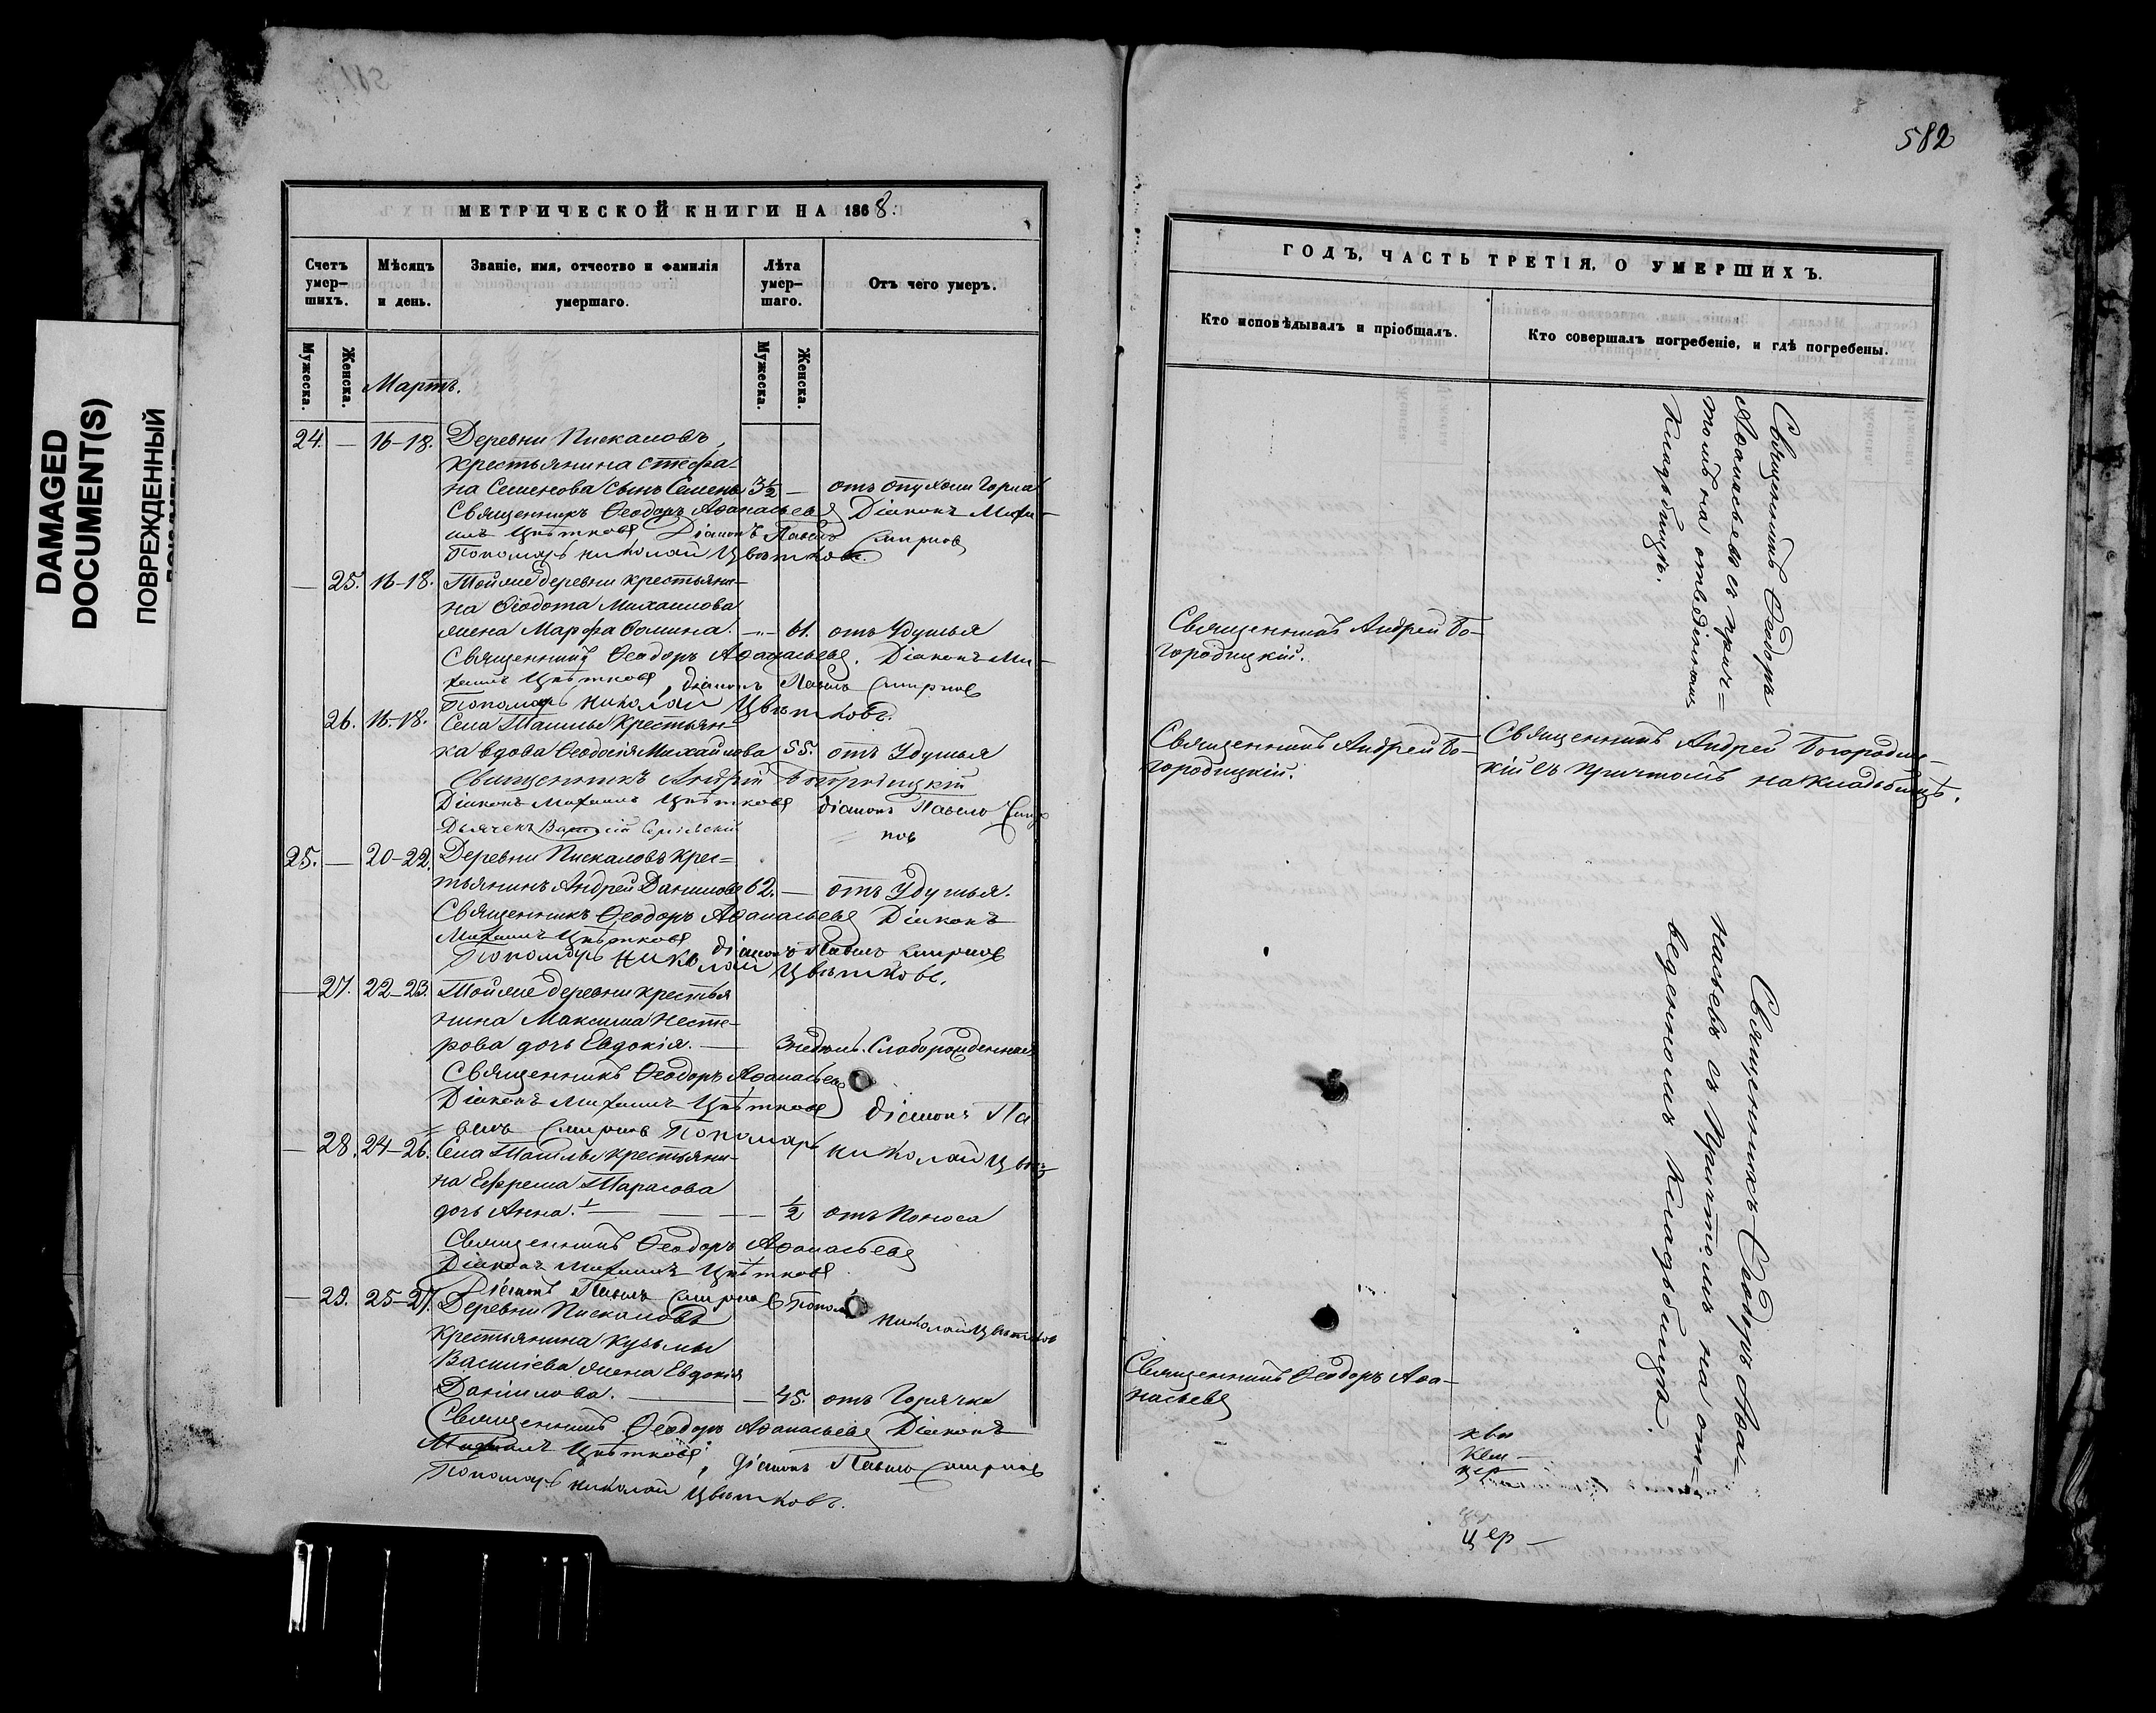 582
DAMAGED
DOCUMENT(S)
ПОВРЕЖДЕННЫЙ
МЕТРИЧЕСКОЙ КНИГИ НА 1868.
Счетъ умер-шихъ.
Мѣсяцъ и день.
Званіе, имя, отчество и фамилія умершаго.
Лѣта умер-шаго.
Отъ чего умеръ.
Мужеска.
Женска.
Мужеска.
Женска.
Мартъ.
24. — 16-18. Деревни Пискаловъ,
крестьянина Стефа-
на Семенова сынъ Семенъ 3½ — отъ опухоли горла
Священникъ Ѳеодоръ Аѳанасьевъ Діаконъ Миха-
илъ Цвѣтковъ Діаконъ Павелъ Смирновъ
Пономарь Николай Цвѣтковъ.
— 25. 16-18. Тойже деревни крестьяни-
на Ѳедота Михаилова
жена Марфа Ѳомина. -"- 61. отъ удушья
Священникъ Ѳеодоръ Аѳанасьевъ. Діаконъ Ми-
хаилъ Цвѣтковъ, діаконъ Павелъ Смирновъ
Пономарь Николай Цвѣтковъ.
26. 16-18. Села Ташлы крестьян-
ка вдова Ѳеодосія Михайлова 55. отъ удушья
Священникъ Андрей Богородицкій
Діаконъ Михаилъ Цвѣтковъ діаконъ Павелъ Смир=
Дьячекъ
новъ
25. — 20-22. Деревни Пискаловъ крес=
тьянинъ Андрей Даниловъ 62. — отъ удушья.
Священникъ Ѳеодоръ Аѳанасьевъ Діаконъ
Михаилъ Цвѣтковъ діаконъ Павелъ Смирновъ
Пономарь Николай Цвѣтковъ.
— 27. 22-23. Тойже деревни крестья
нина Максима Несте-
рова дочь Евдокія. — 3 недѣль. Слаборожденная
Священникъ Ѳеодоръ Аѳанасьевъ
Діаконъ Михаилъ Цвѣтковъ діаконъ Па
=велъ Смирновъ Пономарь Николай Цвѣт
— 28. 24-26. Села Ташлы крестьяни-
на Ефрема Тарасова
дочь Анна. — — — ½ отъ поноса
Священникъ Ѳеодоръ Аѳанасьевъ
Діаконъ Михаилъ Цвѣтковъ
Діаконъ Павелъ Смирновъ Поном Николай Цвѣтков
— 29. 25-27. Деревни Пискаловъ
крестьянина Кузьмы
Василіева жена Евдокія
Даніилова. — — 45. отъ горячки
Священникъ Ѳеодоръ Аѳанасьевъ Діаконъ
Михаилъ Цвѣтковъ, діаконъ Павелъ Смирновъ
Пономарь Николай Цвѣтковъ.
ГОДЪ, ЧАСТЬ ТРЕТІЯ, О УМЕРШИХЪ.
Кто исповѣдывалъ и пріобщалъ.
Кто совершалъ погребеніе, и гдѣ погребены.
Священникъ Ѳеодоръ
Аѳанасьевъ съ прич=
томъ на отведенномъ
кладбищѣ.
Священникъ Андрей Бо-
городицкій.
Священникъ Андрей Бо-
городицкій.
Священникъ Андрей Богородиц-
кій съ причтомъ на кладбищѣ.
Священникъ Ѳеодоръ Аѳа=
насьевъ съ причтомъ на от=
веденномъ кладбищѣ.
Священникъ Ѳеодоръ Аѳа-
насьевъ
цер —